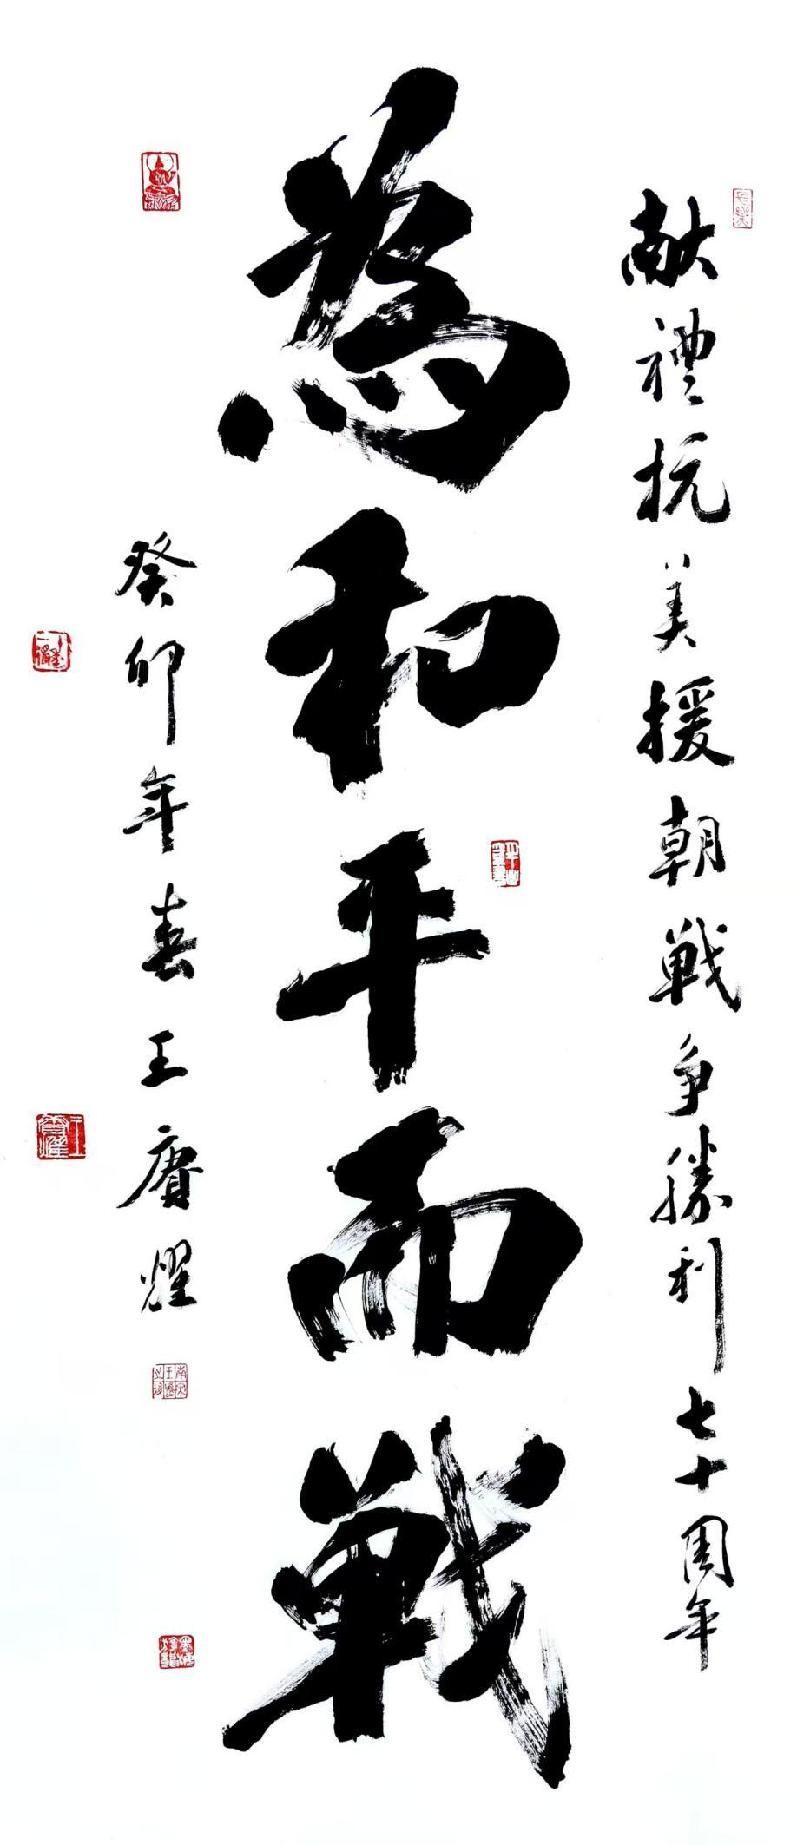 献禮抗美援朝戦争勝利七十周年
為和平而戦
癸卯年春王賡耀